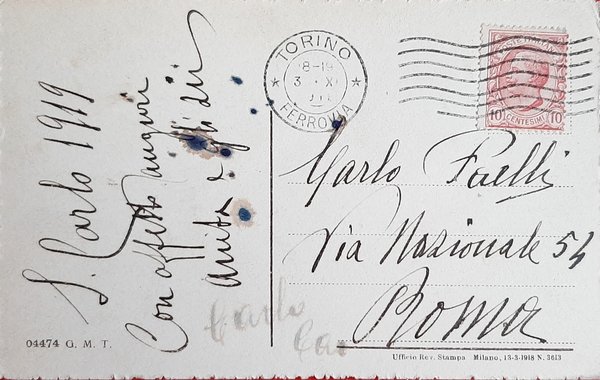 S. Carlo 1919
Con affetto auguri
Anita e
04474 G. M. T.
TORINO
18-19
3 XI
FERROVIA
POSTE ITALIANE
10 CENTESIMI 10
Carlo Faelli
Via Nazionale 54
Roma
Carlo
Car
Ufficio Rev. Stampa Milano, 13-3-1918 N. 3613